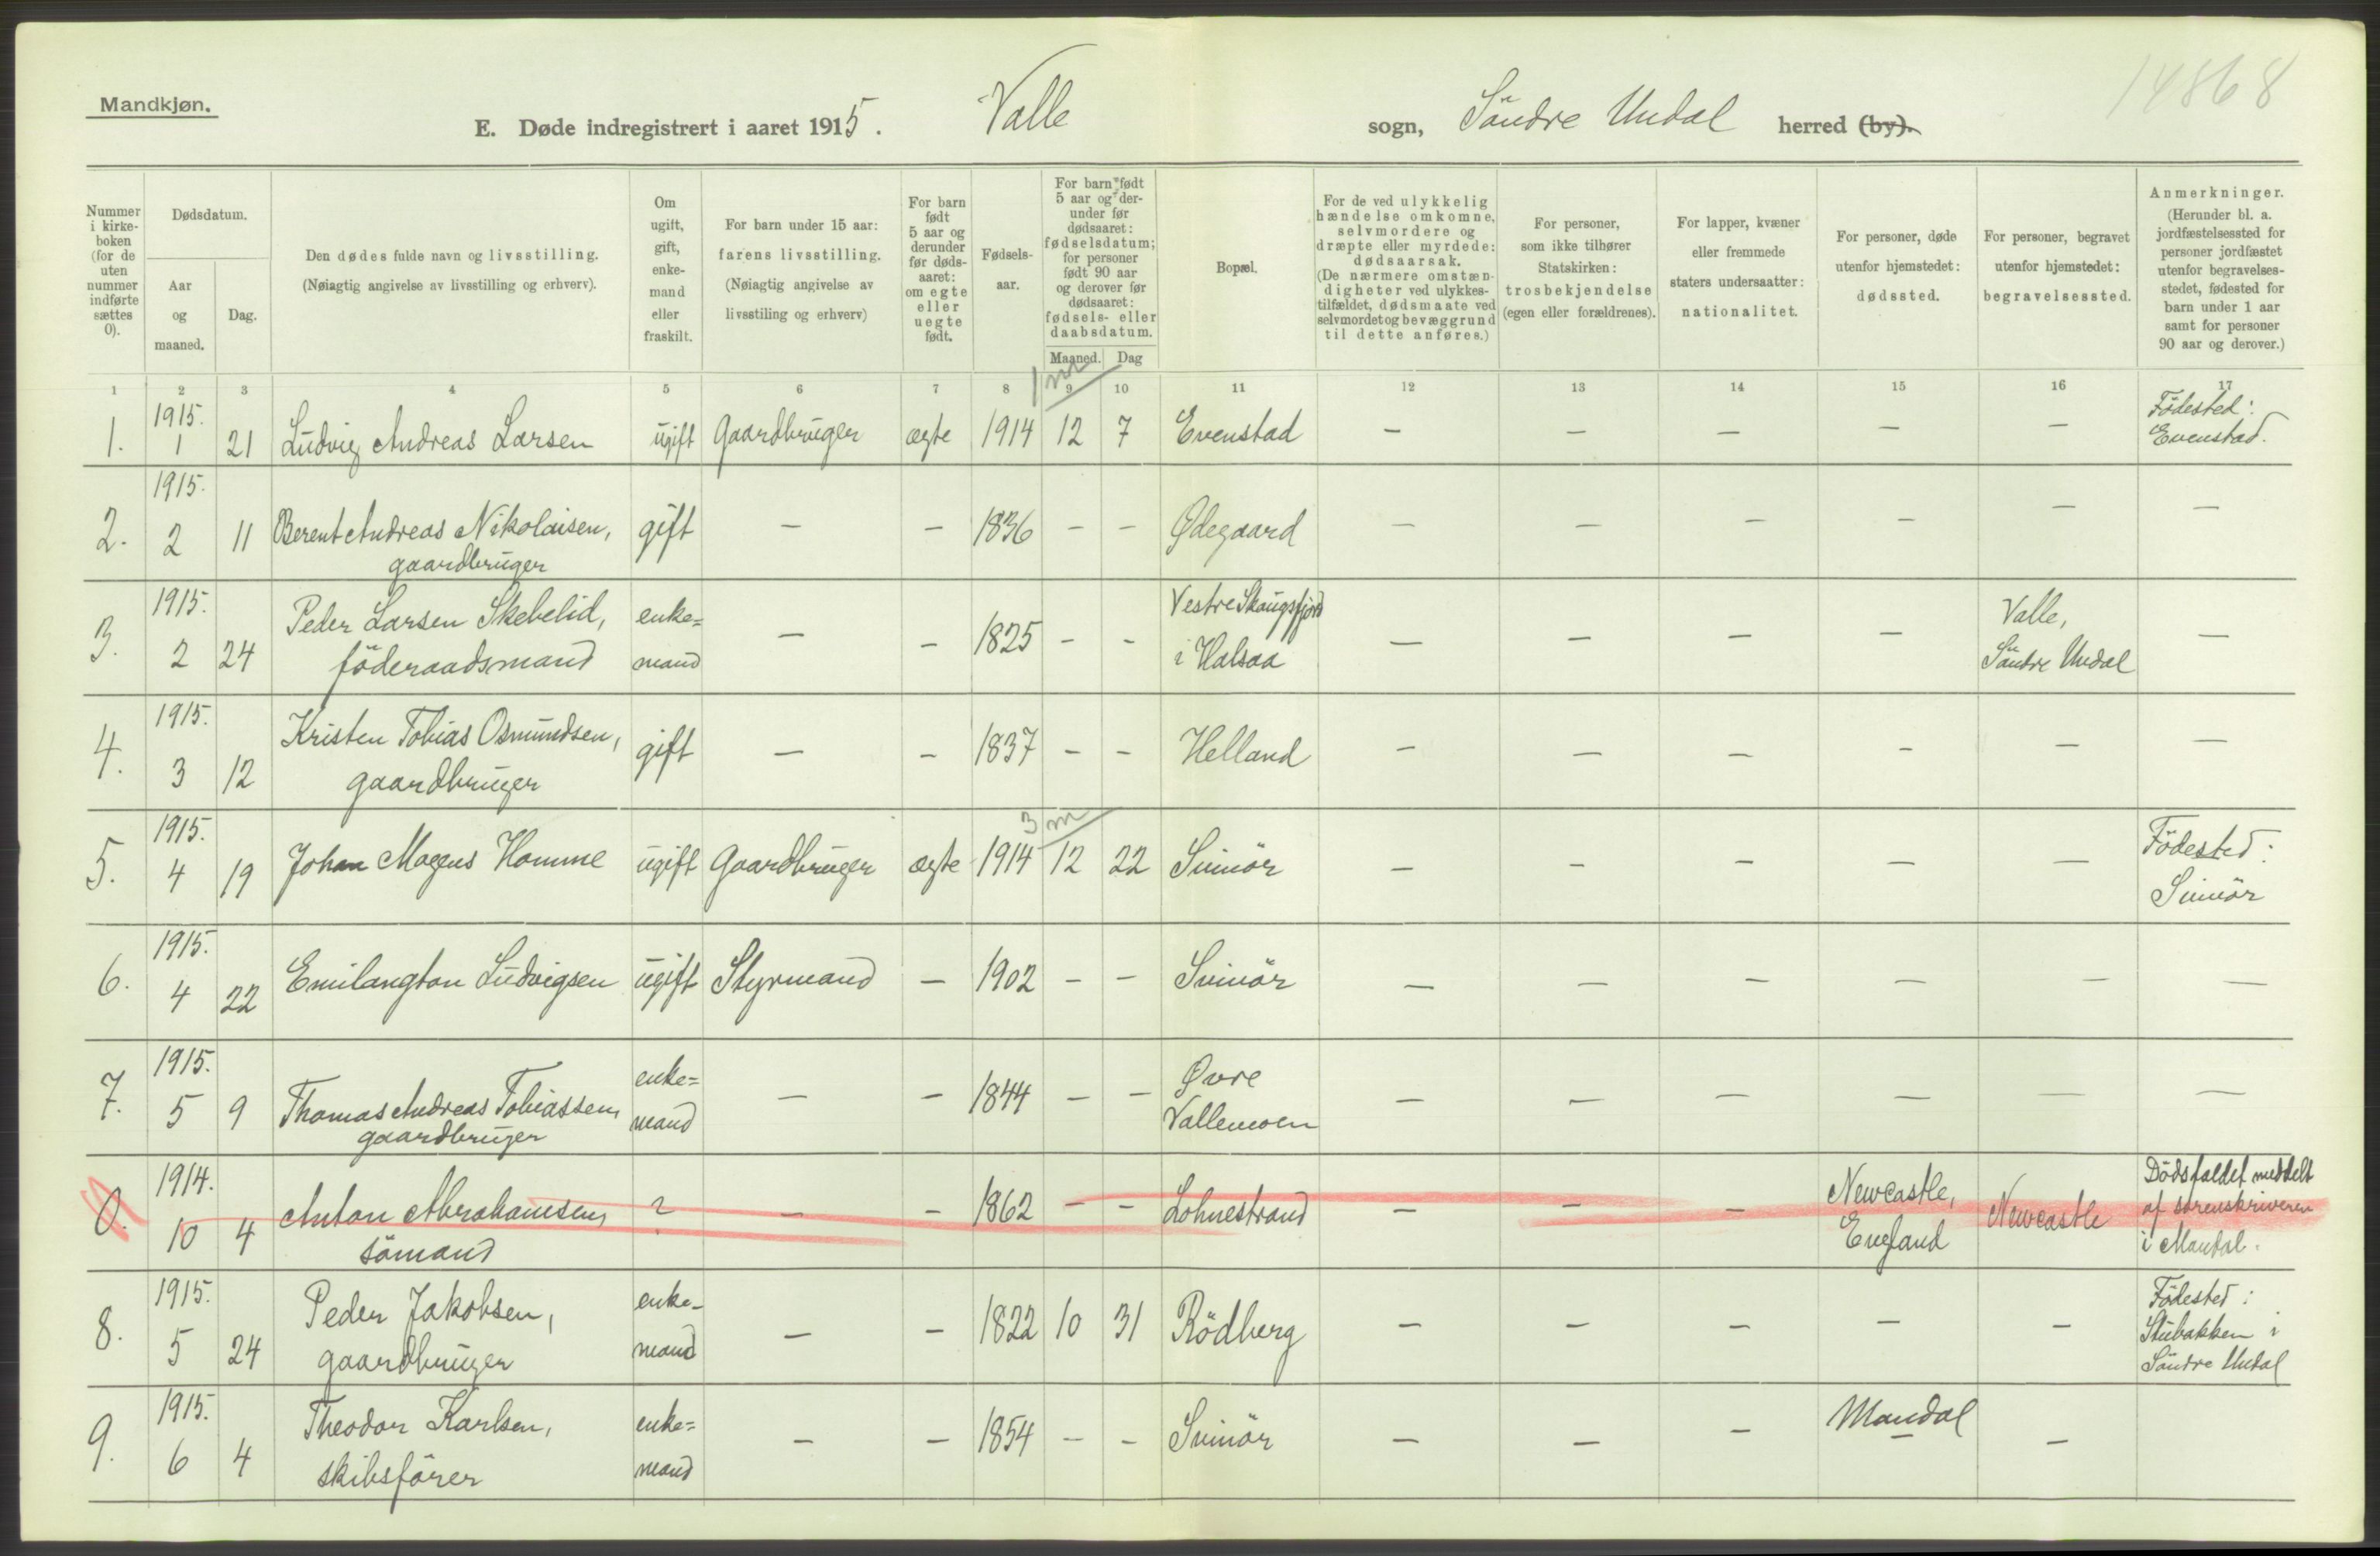 Mandkjøn.
14868
E. Døde indregistrert i aaret 1915. Valle sogn, Söndre Undal herred (by).
Nummer i kirke-boken (for de uten nummer indførte sættes 0).
Dødsdatum.
Aar og maaned.
Dag.
Den dødes fulde navn og livsstilling.
(Nøiagtig angivelse av livsstilling og erhverv).
Om ugift, gift, enke-mand eller fraskilt.
For barn under 15 aar: farens livsstilling.
(Nøiagtig angivelse av livsstiling og erhverv)
For barn født 5 aar og derunder før døds-aaret: om egte eller uegte født.
Fødsels-aar.
For barn født 5 aar og der-under før dødsaaret: fødselsdatum; for personer født 90 aar og derover før dødsaaret: fødsels- eller daabsdatum.
Maaned. Dag
Bopæl.
For de ved ulykkelig hændelse omkomne, selvmordere og dræpte eller myrdede: dødsaarsak.
(De nærmere omstæn-digheter ved ulykkes-tilfældet, dødsmaate ved selvmordet og bevæggrund til dette anføres.)
For personer, som ikke tilhører Statskirken: trosbekjendelse (egen eller forældrenes).
For lapper, kvæner eller fremmede staters undersaatter: nationalitet.
For personer, døde utenfor hjemstedet: dødssted.
For personer, begravet utenfor hjemstedet: begravelsessted.
Anmerkninger.
(Herunder bl. a. jordfæstelsessted for personer jordfæstet utenfor begravelses-stedet, fødested for barn under 1 aar samt for personer 90 aar og derover.)
1 2 3 4 5 6 7 8 9 10 11 12 13 14 15 16 17
1 m
1. 1915. 1 21 Ludvig Andreas Larsen ugift Gaardbruger ægte 1914 12 7 Evenstad — — — — — Födested: Evenstad.
2. 1915. 2 11 Berent Andreas Nikolaisen, gaardbruger gift — — 1836 — — Ødegaard — — — — — —
3. 1915. 2 24 Peder Larsen Skebelid, föderaadsmand enke=mand — — 1825 — — Vestre Skaugsfjord i Halsaa — — — — Valle, Söndre Undal —
4. 1915. 3 12 Kristen Tobias Osmundsen, gaardbruger gift — — 1837 — — Helland — — — — — —
3 m
5. 1915. 4 19 Johan Magnus Homme ugift Gaardbruger ægte 1914 12 22 Svinör — — — — — Födested: Svinör
6. 1915. 4 22 Emilangton Ludvigsen ugift Styrmand — 1902 — — Svinör — — — — — —
7. 1915. 5 9 Thomas Andreas Tobiassen, gaardbruger enke=mand — — 1844 — — Øvre Vallemoen — — — — — —
0. 1914. 10 4 Anton Abrahamsen, sömand ? — — 1862 — — Lohnestrand — — — Newcastle, England Newcastle Dödsfaldet meddelt af sorenskriveren i Mandal.
8. 1915. 5 24 Peder Jakobsen, gaardbruger enke-mand — — 1822 10 31 Rödberg — — — — — Födested: Stubakken i Söndre Undal
9. 1915. 6 4 Theodor Karlsen, skibsförer enke=mand — — 1854 — — Svinör — — — Mandal —